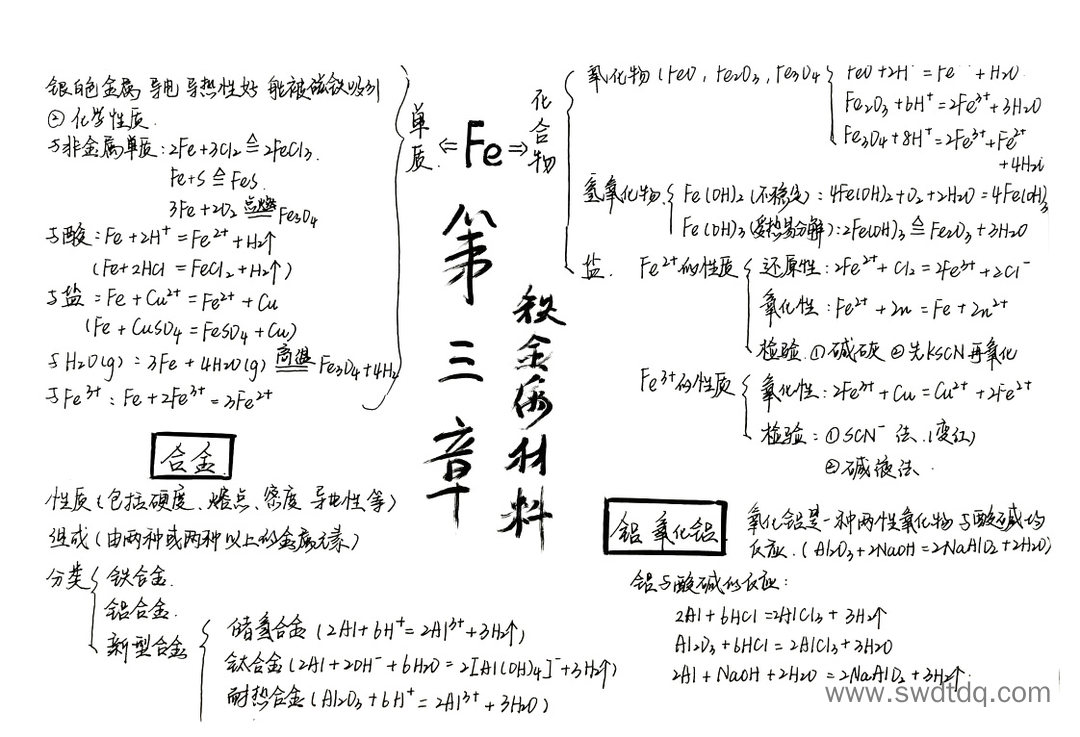 银白色金属 导电 导热性好 能被磁铁吸引
②化学性质.
与非金属单质:2Fe+3Cl2≜2FeCl3.
Fe+S≜FeS.
3Fe+2O2 点燃 Fe3O4
与酸:Fe+2H⁺=Fe²⁺+H2↑
(Fe+2HCl=FeCl2+H2↑)
与盐=Fe+Cu²⁺=Fe²⁺+Cu
(Fe+CuSO4=FeSO4+Cu)
与H2O(g)=3Fe+4H2O(g) 高温 Fe3O4+4H2
与Fe³⁺:Fe+2Fe³⁺=3Fe²⁺
单质
⇐Fe⇒
化合物
第三章
铁金属材料
氧化物(FeO,Fe2O3,Fe3O4
FeO+2H⁺=Fe+H2O
Fe2O3+6H⁺=2Fe³⁺+3H2O
Fe3O4+8H⁺=2Fe³⁺+Fe²⁺
+4H2
氢氧化物
Fe(OH)2(不稳定):4Fe(OH)2+O2+2H2O=4Fe(OH)3
Fe(OH)3(受热易分解):2Fe(OH)3≜Fe2O3+3H2O
盐.
Fe²⁺的性质
还原性:2Fe²⁺+Cl2=2Fe³⁺+2Cl⁻
氧化性:Fe²⁺+Zn=Fe+Zn²⁺
检验.①碱 ②先KSCN再氧化
Fe³⁺的性质
氧化性:2Fe³⁺+Cu=Cu²⁺+2Fe²⁺
检验:①SCN⁻法.(变红)
②碱液法.
合金
性质(包括硬度、熔点、密度 导电性等)
组成(由两种或两种以上的金属元素)
分类
铁合金.
铝合金.
新型合金
储氢合金(2Al+6H⁺=2Al³⁺+3H2↑)
钛合金(2Al+2OH⁻+6H2O=2[Al(OH)4]⁻+3H2↑)
耐热合金(Al2O3+6H⁺=2Al³⁺+3H2O)
铝 氧化铝
氧化铝是一种两性氧化物与酸碱均
反应.(Al2O3+2NaOH=2NaAlO2+2H2O)
铝与酸碱的反应:
2Al+6HCl=2AlCl3+3H2↑
Al2O3+6HCl=2AlCl3+3H2O
2Al+NaOH+2H2O=2NaAlO2+3H2↑.
www.swdtdq.com